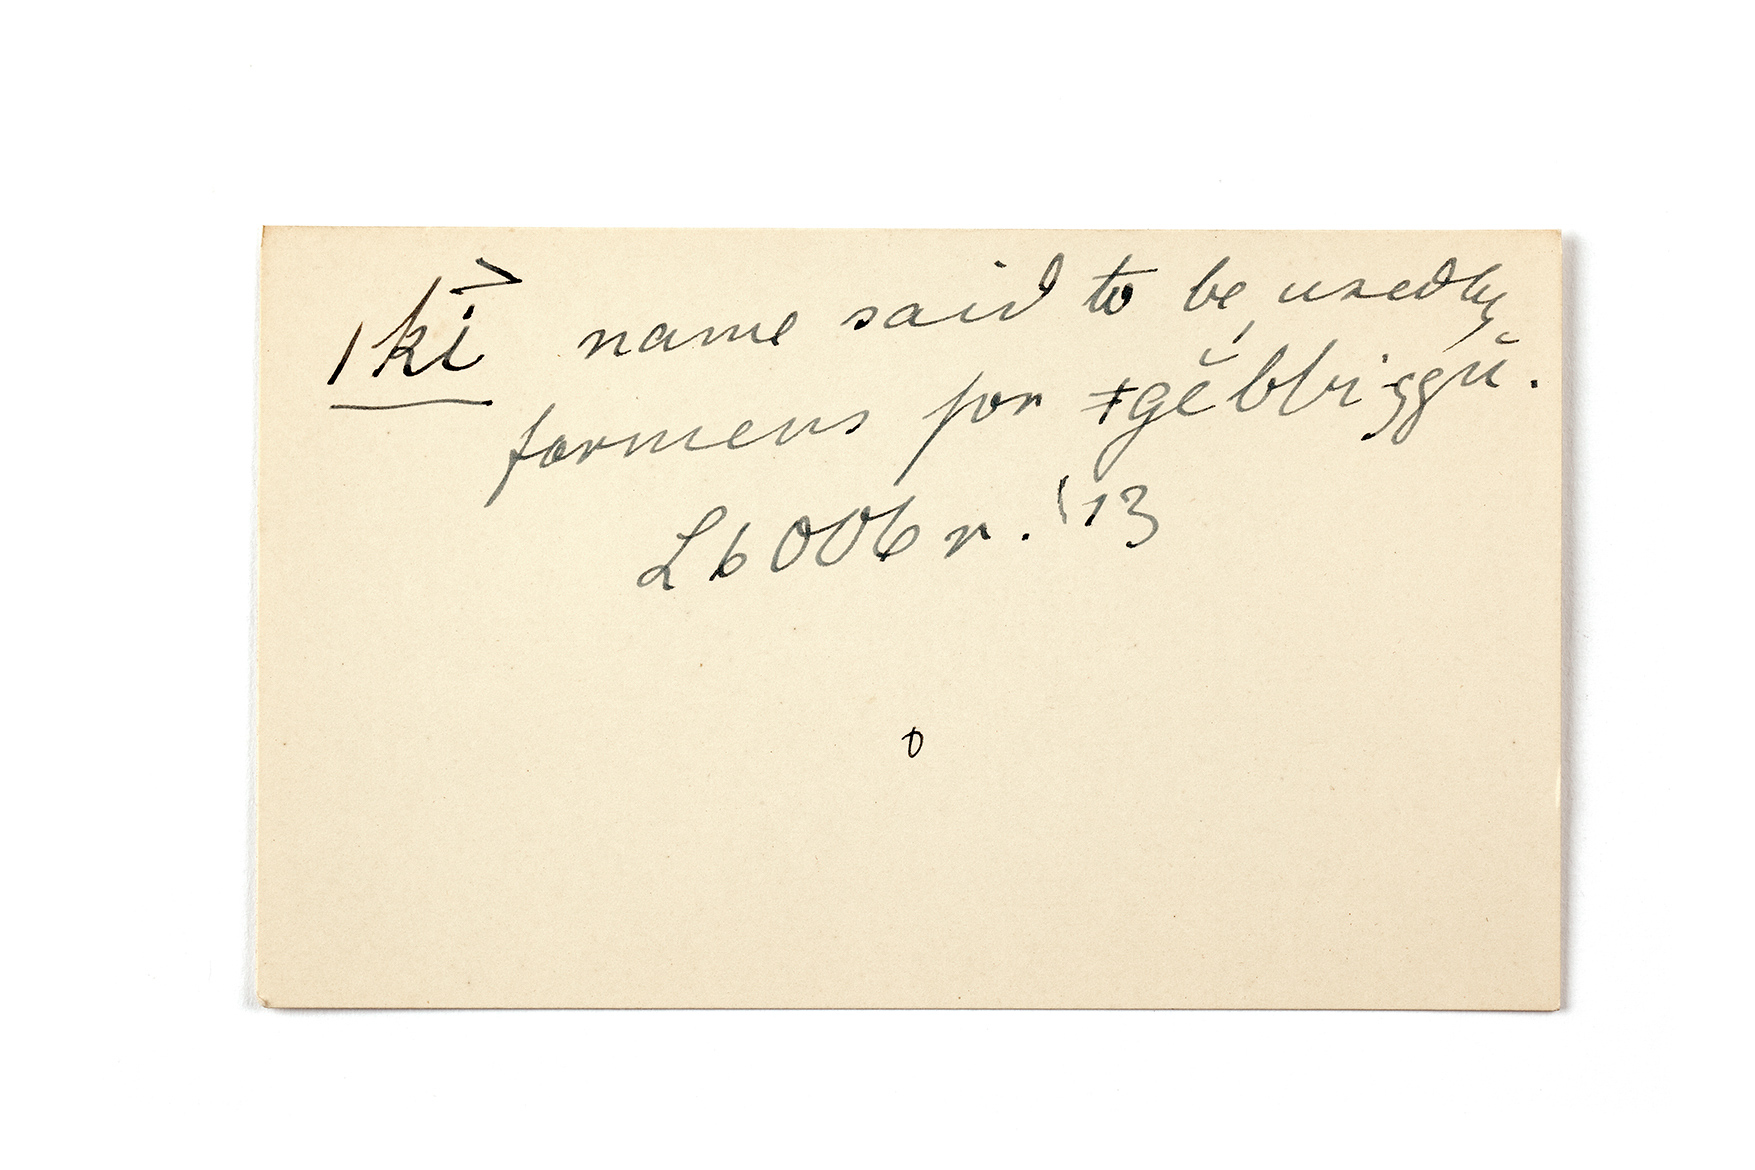 |kí name said to be used by
formens for ǂgĕbbiggŭ.
L6006 r. '13
0